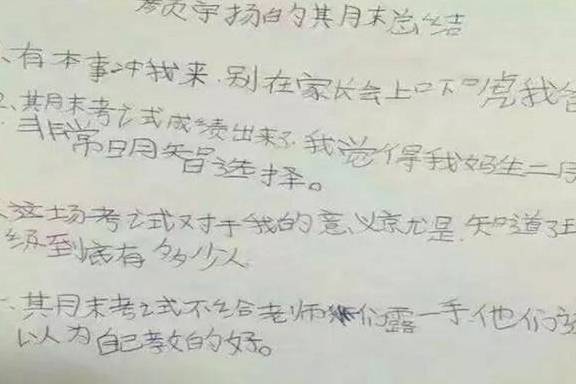 宇扬的期末总结
、有本事冲我来,别在家长会上吓唬我爸
2、期末考试成绩出来了,我觉得我妈生二
非常明智选择。
、这场考试对于我的意义就是,知道了
级到底有多少人
、期末考试不给老师们露一手,他们
以为自己教的好。